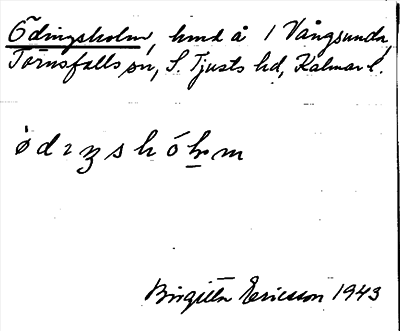 Ödingsholm, hmd å 1 Vångsunda,
Törnsfalls sn, S. Tjusts hd, Kalmar l.
Birgitta Ericsson 1943